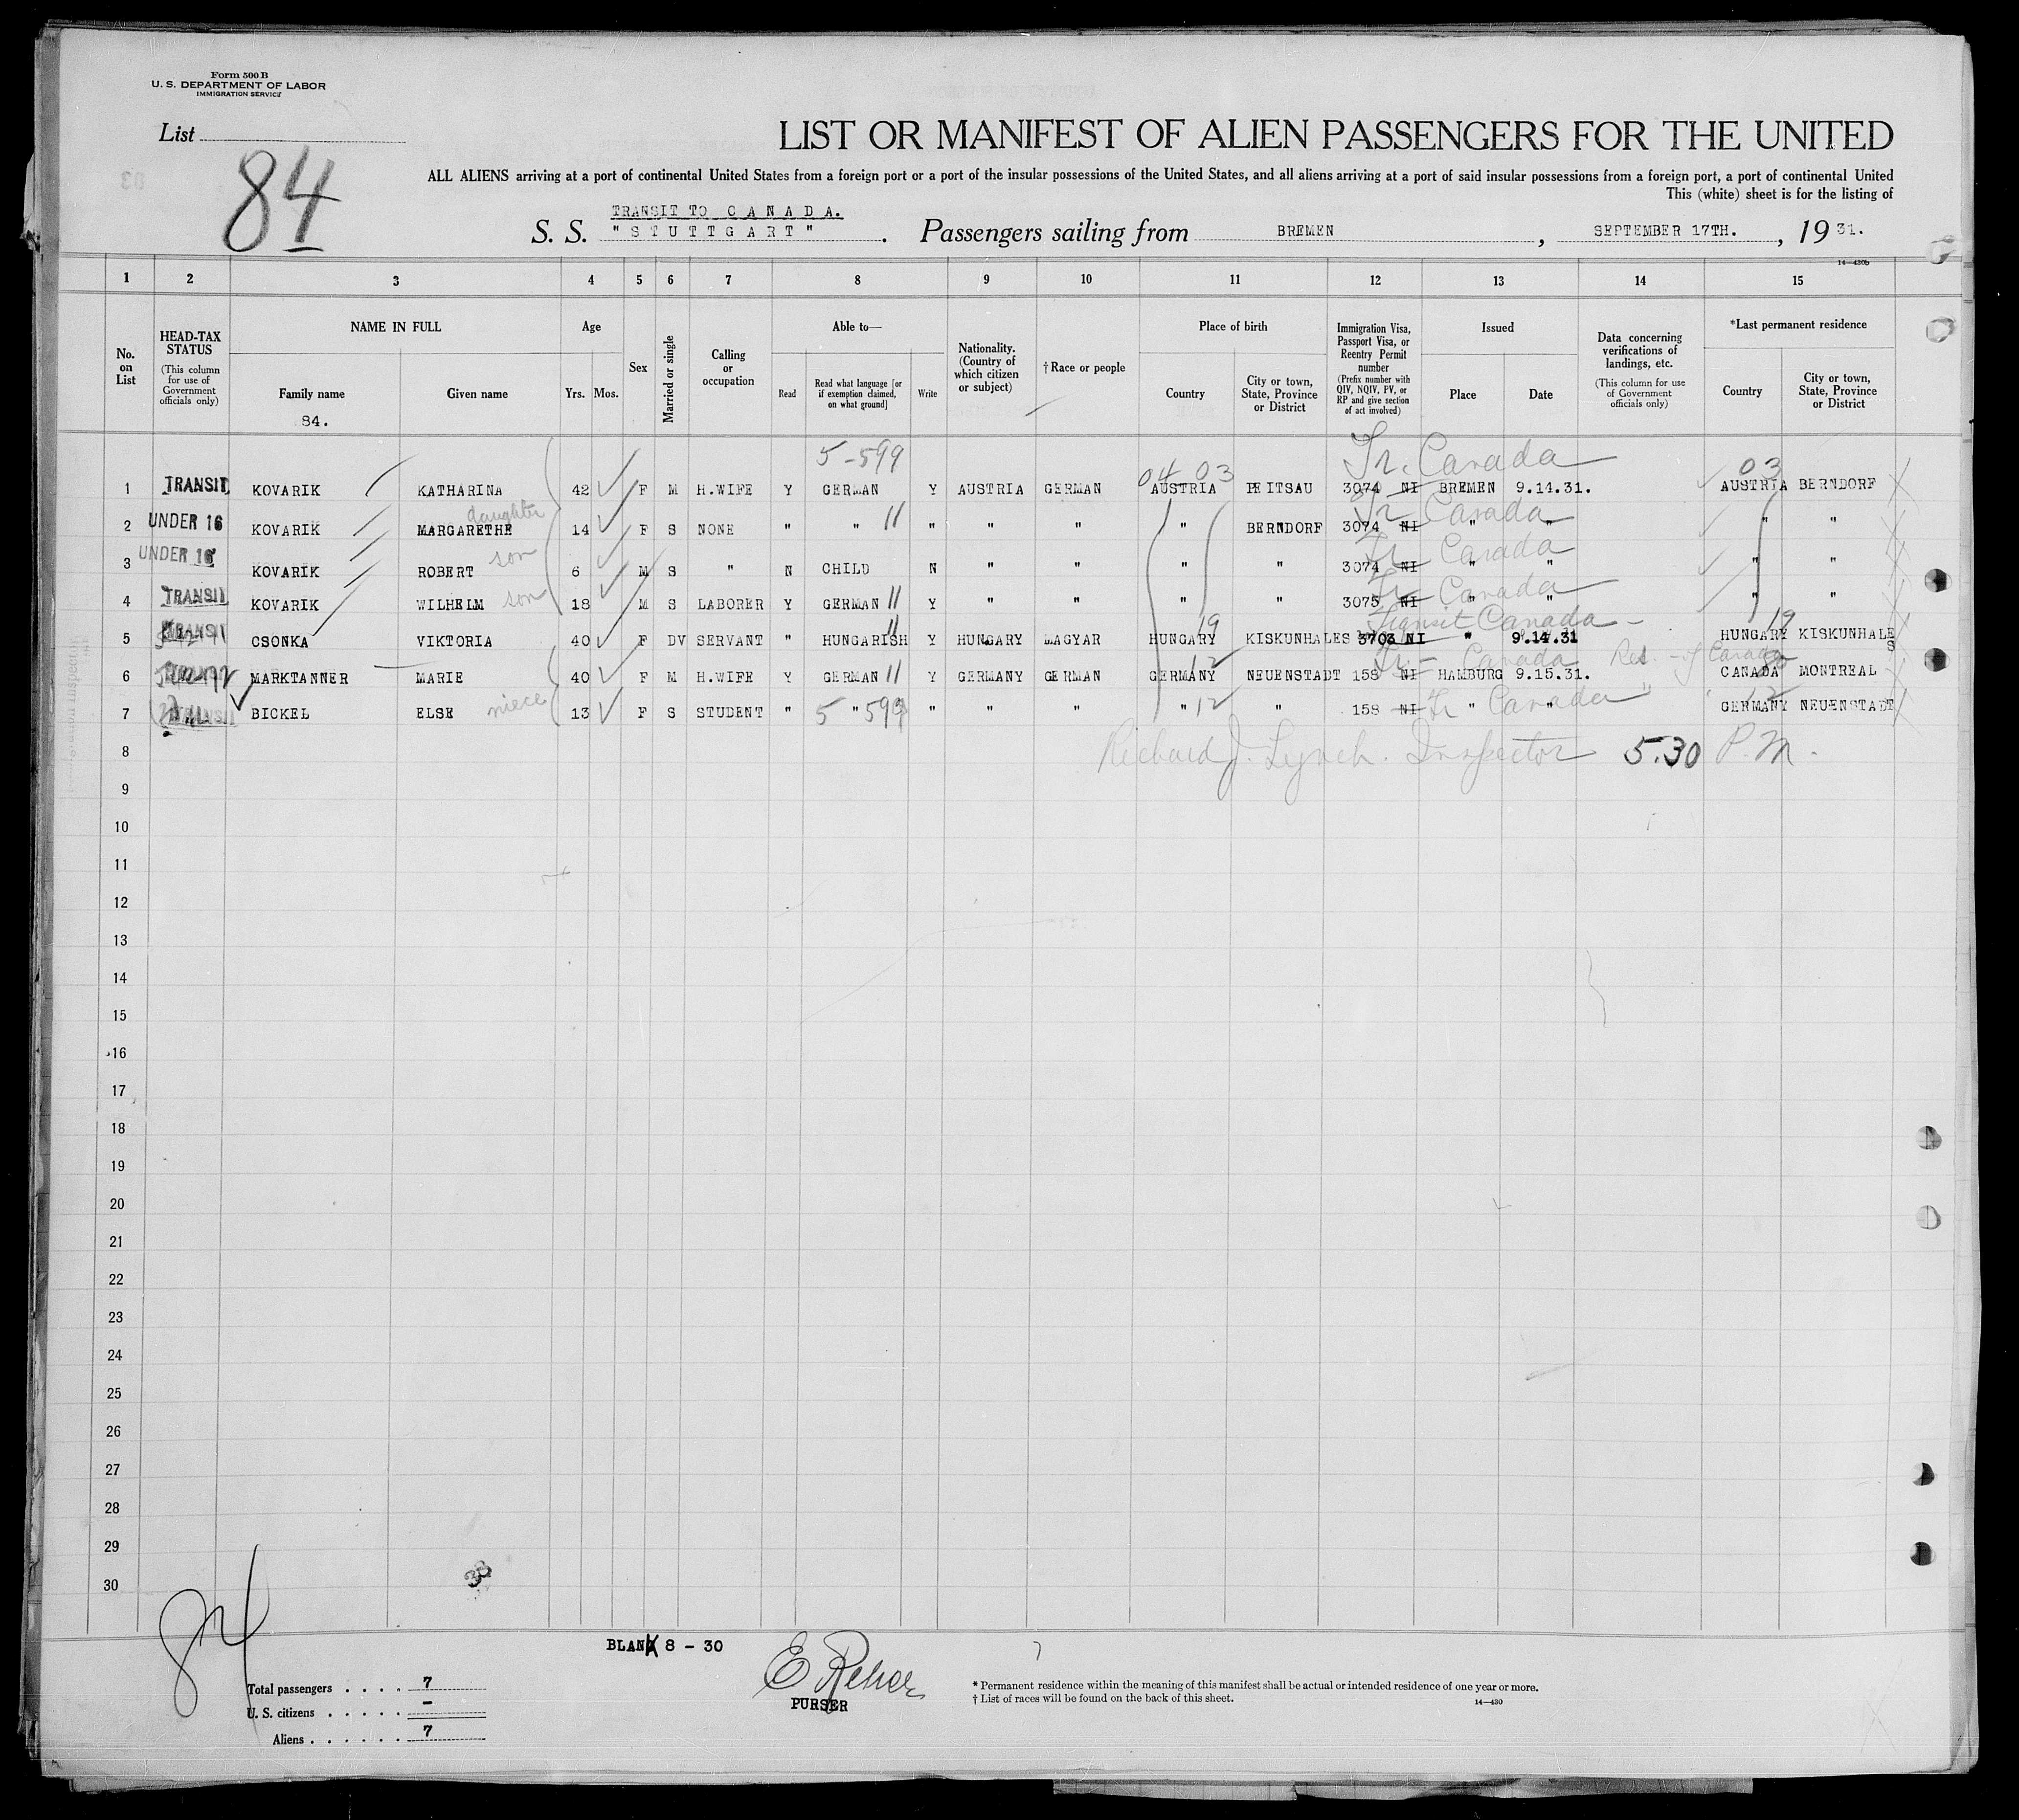 Form 500 B
U. S. DEPARTMENT OF LABOR
IMMIGRATION SERVICE
List
84
LIST OR MANIFEST OF ALIEN PASSENGERS FOR THE UNITED
ALL ALIENS arriving at a port of continental United States from a foreign port or a port of the insular possessions of the United States, and all aliens arriving at a port of said insular possessions from a foreign port, a port of continental United
This (white) sheet is for the listing of
TRANSIT TO C A N A D A.
S. S. "S T U T T G A R T". Passengers sailing from BREMEN, SEPTEMBER 17TH., 19 31.
14—430b
1 2 3 4 5 6 7 8 9 10 11 12 13 14 15
No. on List
HEAD-TAX STATUS (This column for use of Government officials only)
NAME IN FULL
Family name
84.
Given name
Age
Yrs. Mos.
Sex
Married or single
Calling or occupation
Able to—
Read
Read what language [or if exemption claimed, on what ground]
Write
Nationality. (Country of which citizen or subject)
†Race or people
Place of birth
Country
City or town, State, Province or District
Immigration Visa, Passport Visa, or Reentry Permit number (Prefix number with QIV, NQIV, PV, or RP and give section of act involved)
Issued
Place
Date
Data concerning verifications of landings, etc. (This column for use of Government officials only)
*Last permanent residence
Country
City or town, State, Province or District
5-599 04 03 Tr. Canada 03
1 TRANSIT KOVARIK KATHARINA 42 F M H.WIFE Y GERMAN Y AUSTRIA GERMAN AUSTRIA PEITSAU 3074 NI BREMEN 9.14.31. AUSTRIA BERNDORF
daughter Tr Canada
2 UNDER 16 KOVARIK MARGARETHE 14 F S NONE " " 11 " " " " BERNDORF 3074 NI " " " "
son Tr Canada
3 UNDER 16 KOVARIK ROBERT 6 M S " N CHILD N " " " " 3074 NI " " " "
son Tr Canada
4 TRANSIT KOVARIK WILHELM 18 M S LABORER Y GERMAN 11 Y " " " " 3075 NI " " " "
11 19 Transit Canada - 19
5 TRANSIT CSONKA VIKTORIA 40 F DV SERVANT " HUNGARISH Y HUNGARY MAGYAR HUNGARY KISKUNHALES 3703 NI " 9.14.31 HUNGARY KISKUNHALES
12 Tr - Canada Res. - of Canada
6 MARKTANNER MARIE 40 F M H.WIFE Y GERMAN 11 Y GERMANY GERMAN GERMANY NEUENSTADT 158 NI HAMBURG 9.15.31. CANADA MONTREAL
niece 5 599 12 Tr Canada 12
7 TRANSIT BICKEL ELSE 13 F S STUDENT " " " " " " " 158 NI " " GERMANY NEUENSTADT
8 Richard J. Lynch. Inspector 5.30 P.M.
9
10
11
12
13
14
15
16
17
18
19
20
21
22
23
24
25
26
27
28
29
30
84
BLANK 8 - 30
PURSER
Total passengers . . . . 7
U. S. citizens . . . . . –
Aliens . . . . . . 7
* Permanent residence within the meaning of this manifest shall be actual or intended residence of one year or more.
† List of races will be found on the back of this sheet.
14—430